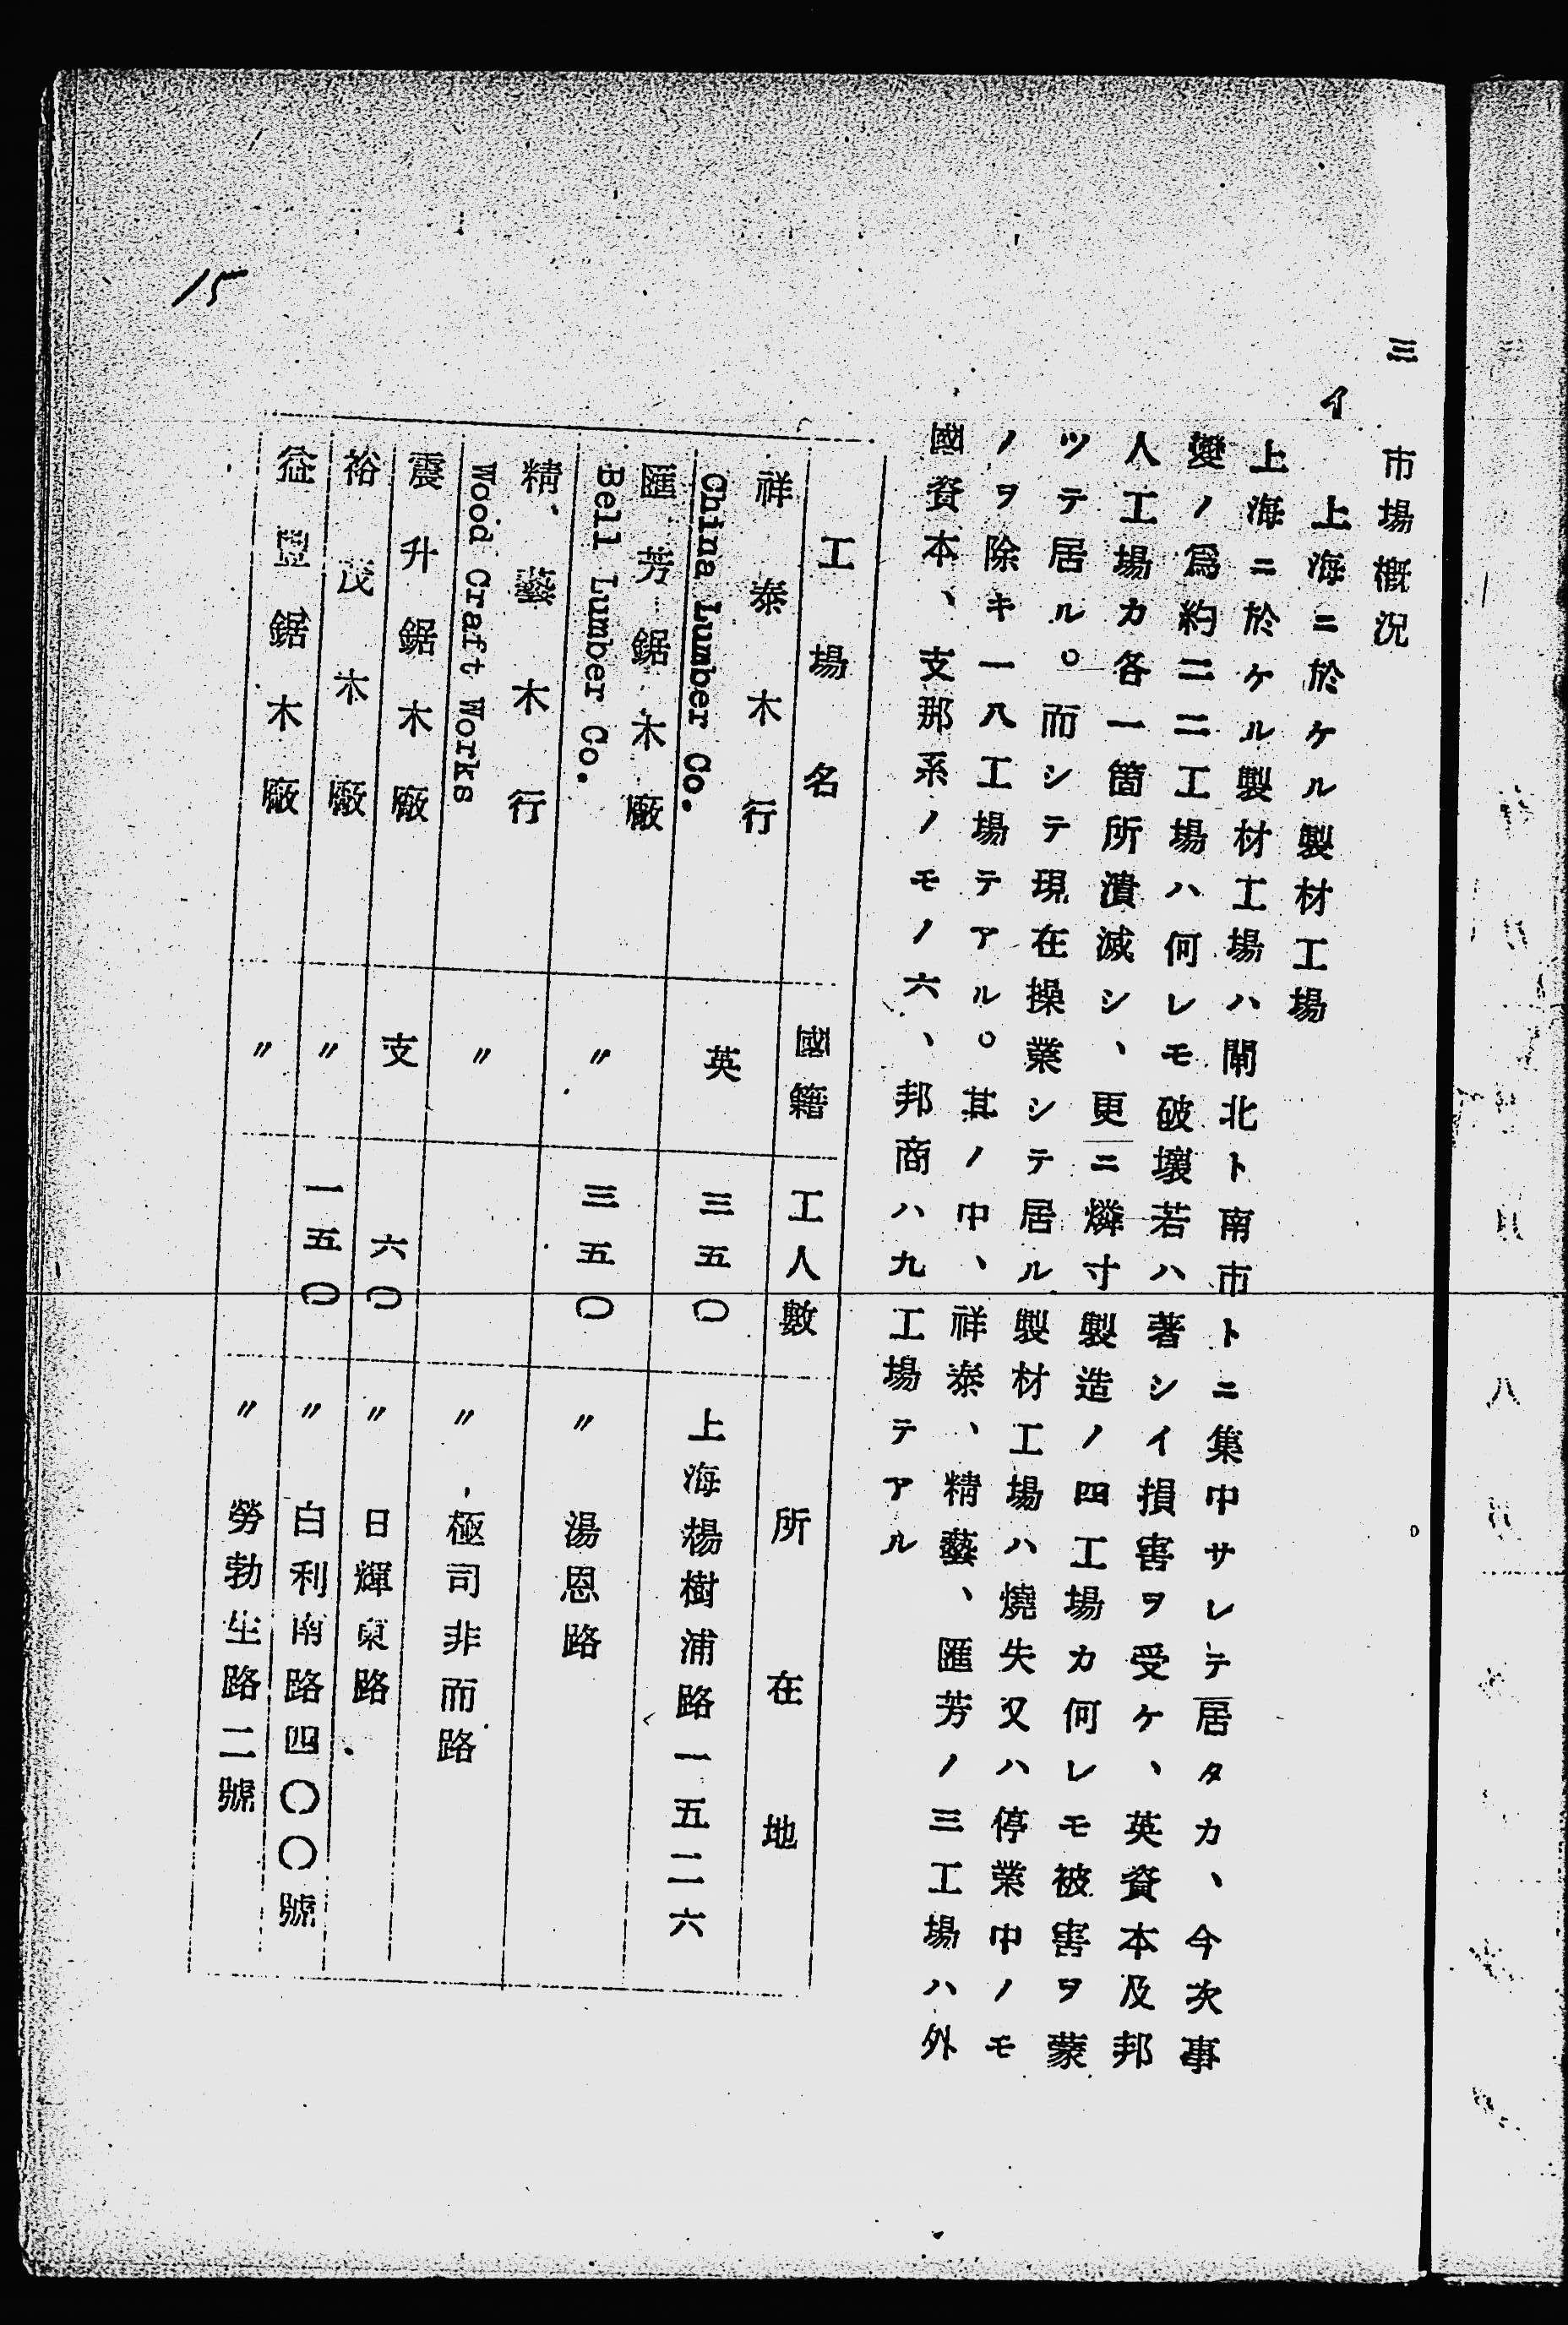 三　市場概況
イ　上海ニ於ケル製材工場
上海ニ於ケル製材工場ハ閘北ト南市トニ集中サレテ居タカ、今次事
變ノ爲約二二工場ハ何レモ破壞若ハ著シイ損害ヲ受ケ、英資本及邦
人工場カ各一箇所潰滅シ、更ニ燐寸製造ノ四工場カ何レモ被害ヲ蒙
ツテ居ル。而シテ現在操業シテ居ル製材工場ハ燒失又ハ停業中ノモ
ノヲ除キ一八工場テアル。其ノ中、祥泰、精藝、匯芳ノ三工場ハ外
國資本、支那系ノモノ六、邦商ハ九工場テアル
工場名　國籍　工人數　所在地
祥泰木行　英　三五〇　上海楊樹浦路一五二六
China Lumber Co.
匯芳鋸木廠　〃　三五〇　〃　湯恩路
Bell Lumber Co.
精藝木行　〃　〃　極司非而路
Wood Craft Works
震升鋸木廠　支　六〇　〃　日輝東路
裕茂木廠　〃　一五〇　〃　白利南路四〇〇號
益豐鋸木廠　〃　〃　勞勃生路二號
15